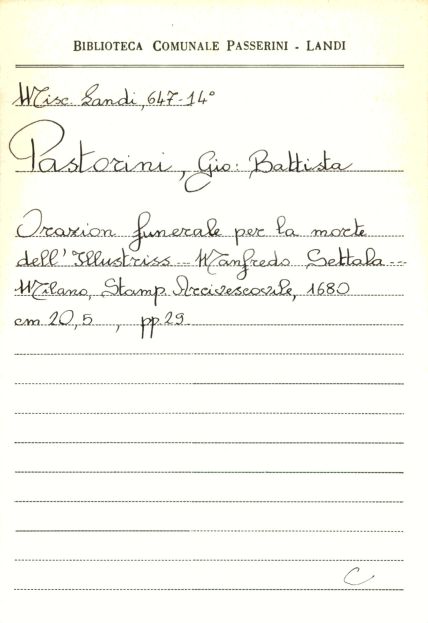 BIBLIOTECA COMUNALE PASSERINI - LANDI
Misc. Landi, 647-14°
Pastorini, Gio: Battista
Orazion funerale per la morte
dell'Illustriss... Manfredo Settala...
Milano, Stamp. Arcivescovile, 1680
cm 20,5 , pp. 29
C